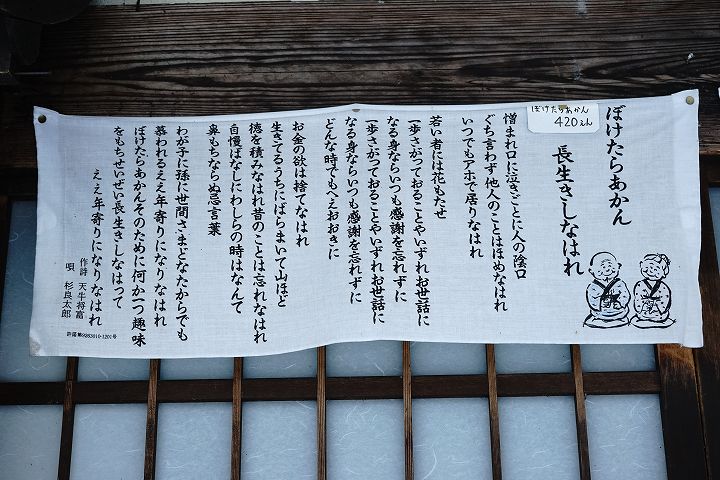 ぼけたらあかん
420えん
ぼけたらあかん
長生きしなはれ
憎まれ口に泣きごとに人の陰口
ぐち言わず他人のことはほめなはれ
いつでもアホで居りなはれ
若い者には花もたせ
一歩さがっておることやいずれお世話に
なる身ならいつも感謝を忘れずに
一歩さがっておることやいずれお世話に
なる身ならいつも感謝を忘れずに
どんな時でもへえおおきに
お金の欲は捨てなはれ
生きてるうちにばらまいて山ほど
徳を積みなはれ昔のことは忘れなはれ
自慢ばなしにわしらの時はなんて
鼻もちならぬ忌言葉
わが子に孫に世間さまどなたからでも
慕われるええ年寄りになりなはれ
ぼけたらあかんそのために何か一つ趣味
をもちせいぜい長生きしなはって
ええ年寄りになりなはれ
作詩 天牛将富
唄 杉良太郎
許諾第9263610-1201号